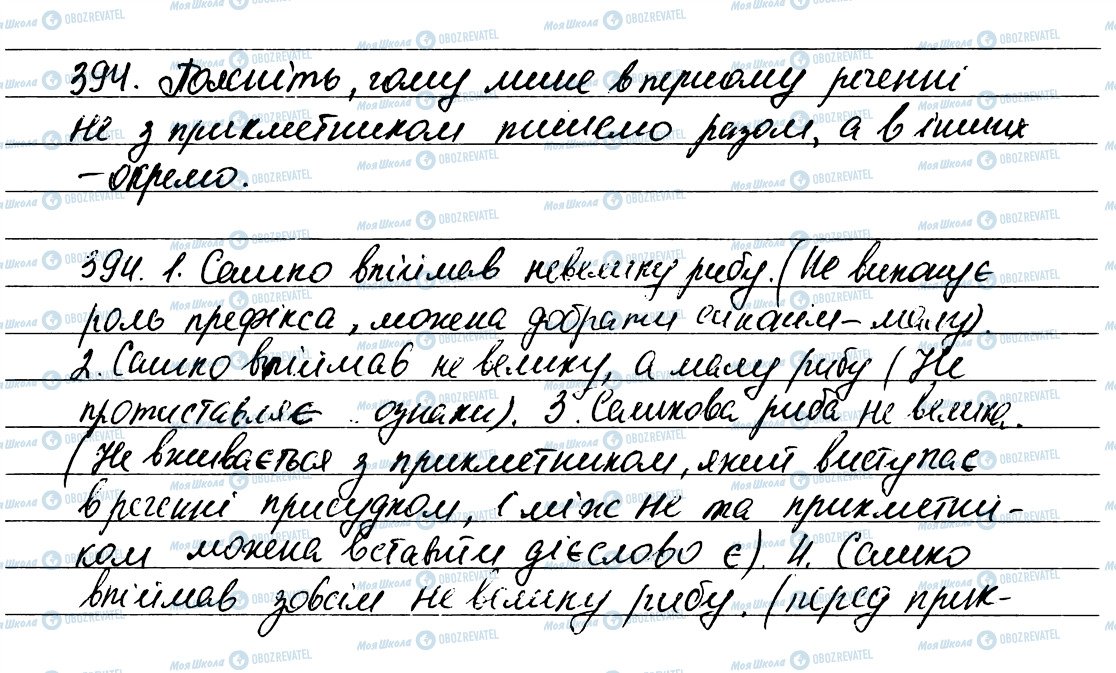 394. Поясніть, чому лише в першому реченні
не з прикметником пишемо разом, а в інших
– окремо.
394. 1. Сашко впіймав невелику рибу. (Не виконує
роль префікса, можна добрати синонім – малу).
2. Сашко впіймав не велику, а малу рибу (Не
протиставляє ознаки). 3. Сашкова риба не велика.
(Не вживається з прикметником, який виступає
в реченні присудком, і між не та прикметни-
ком можна вставити дієслово є). 4. Сашко
впіймав зовсім не велику рибу. (перед прик-